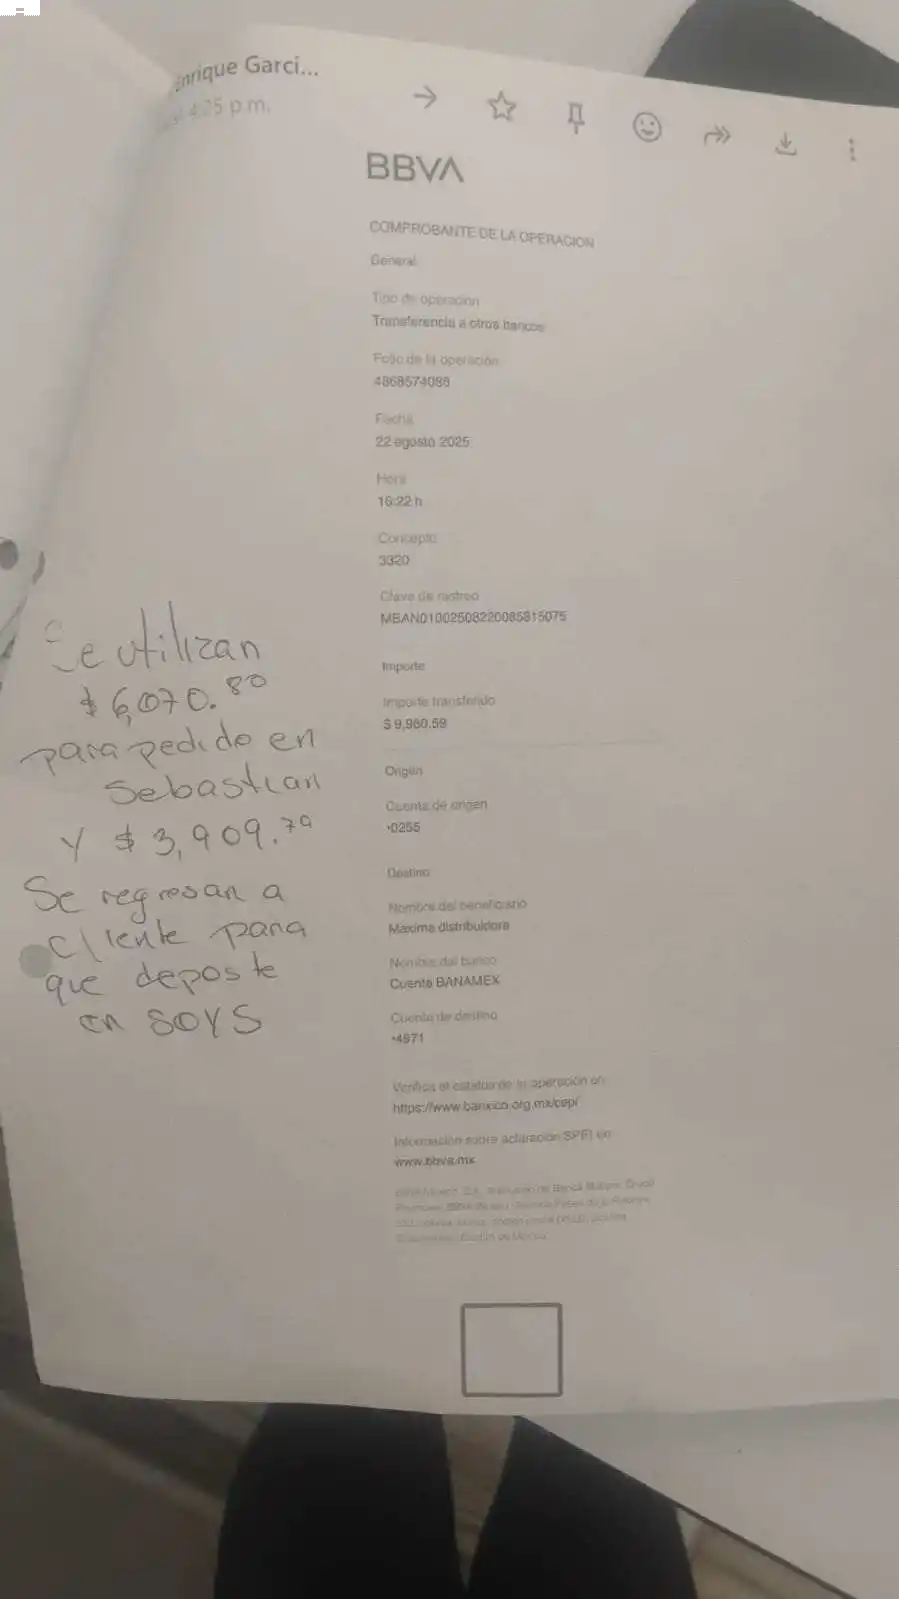 nrique Garci...
4:25 p.m.
BBVA
COMPROBANTE DE LA OPERACION
General
Tipo de operación
Transferencia a otros bancos
Folio de la operación
4868574086
Fecha
22 agosto 2025
Hora
16:22 h
Concepto
3320
Clave de rastreo
MBAN01002508220085815075
Importe
Importe transferido
$ 9,980.59
Origen
Cuenta de origen
•0255
Destino
Nombre del beneficiario
Maxima distribuidora
Nombre del banco
Cuenta BANAMEX
Cuenta de destino
•4971
Verifica el estatus de tu operación en
https://www.banxico.org.mx/cep/
Información sobre aclaración SPEI en
www.bbva.mx
Se utilizan
$ 6,070.80
para pedido en
Sebastian
Y $ 3,909.79
Se regresan a
cliente para
que deposte
en SOYS